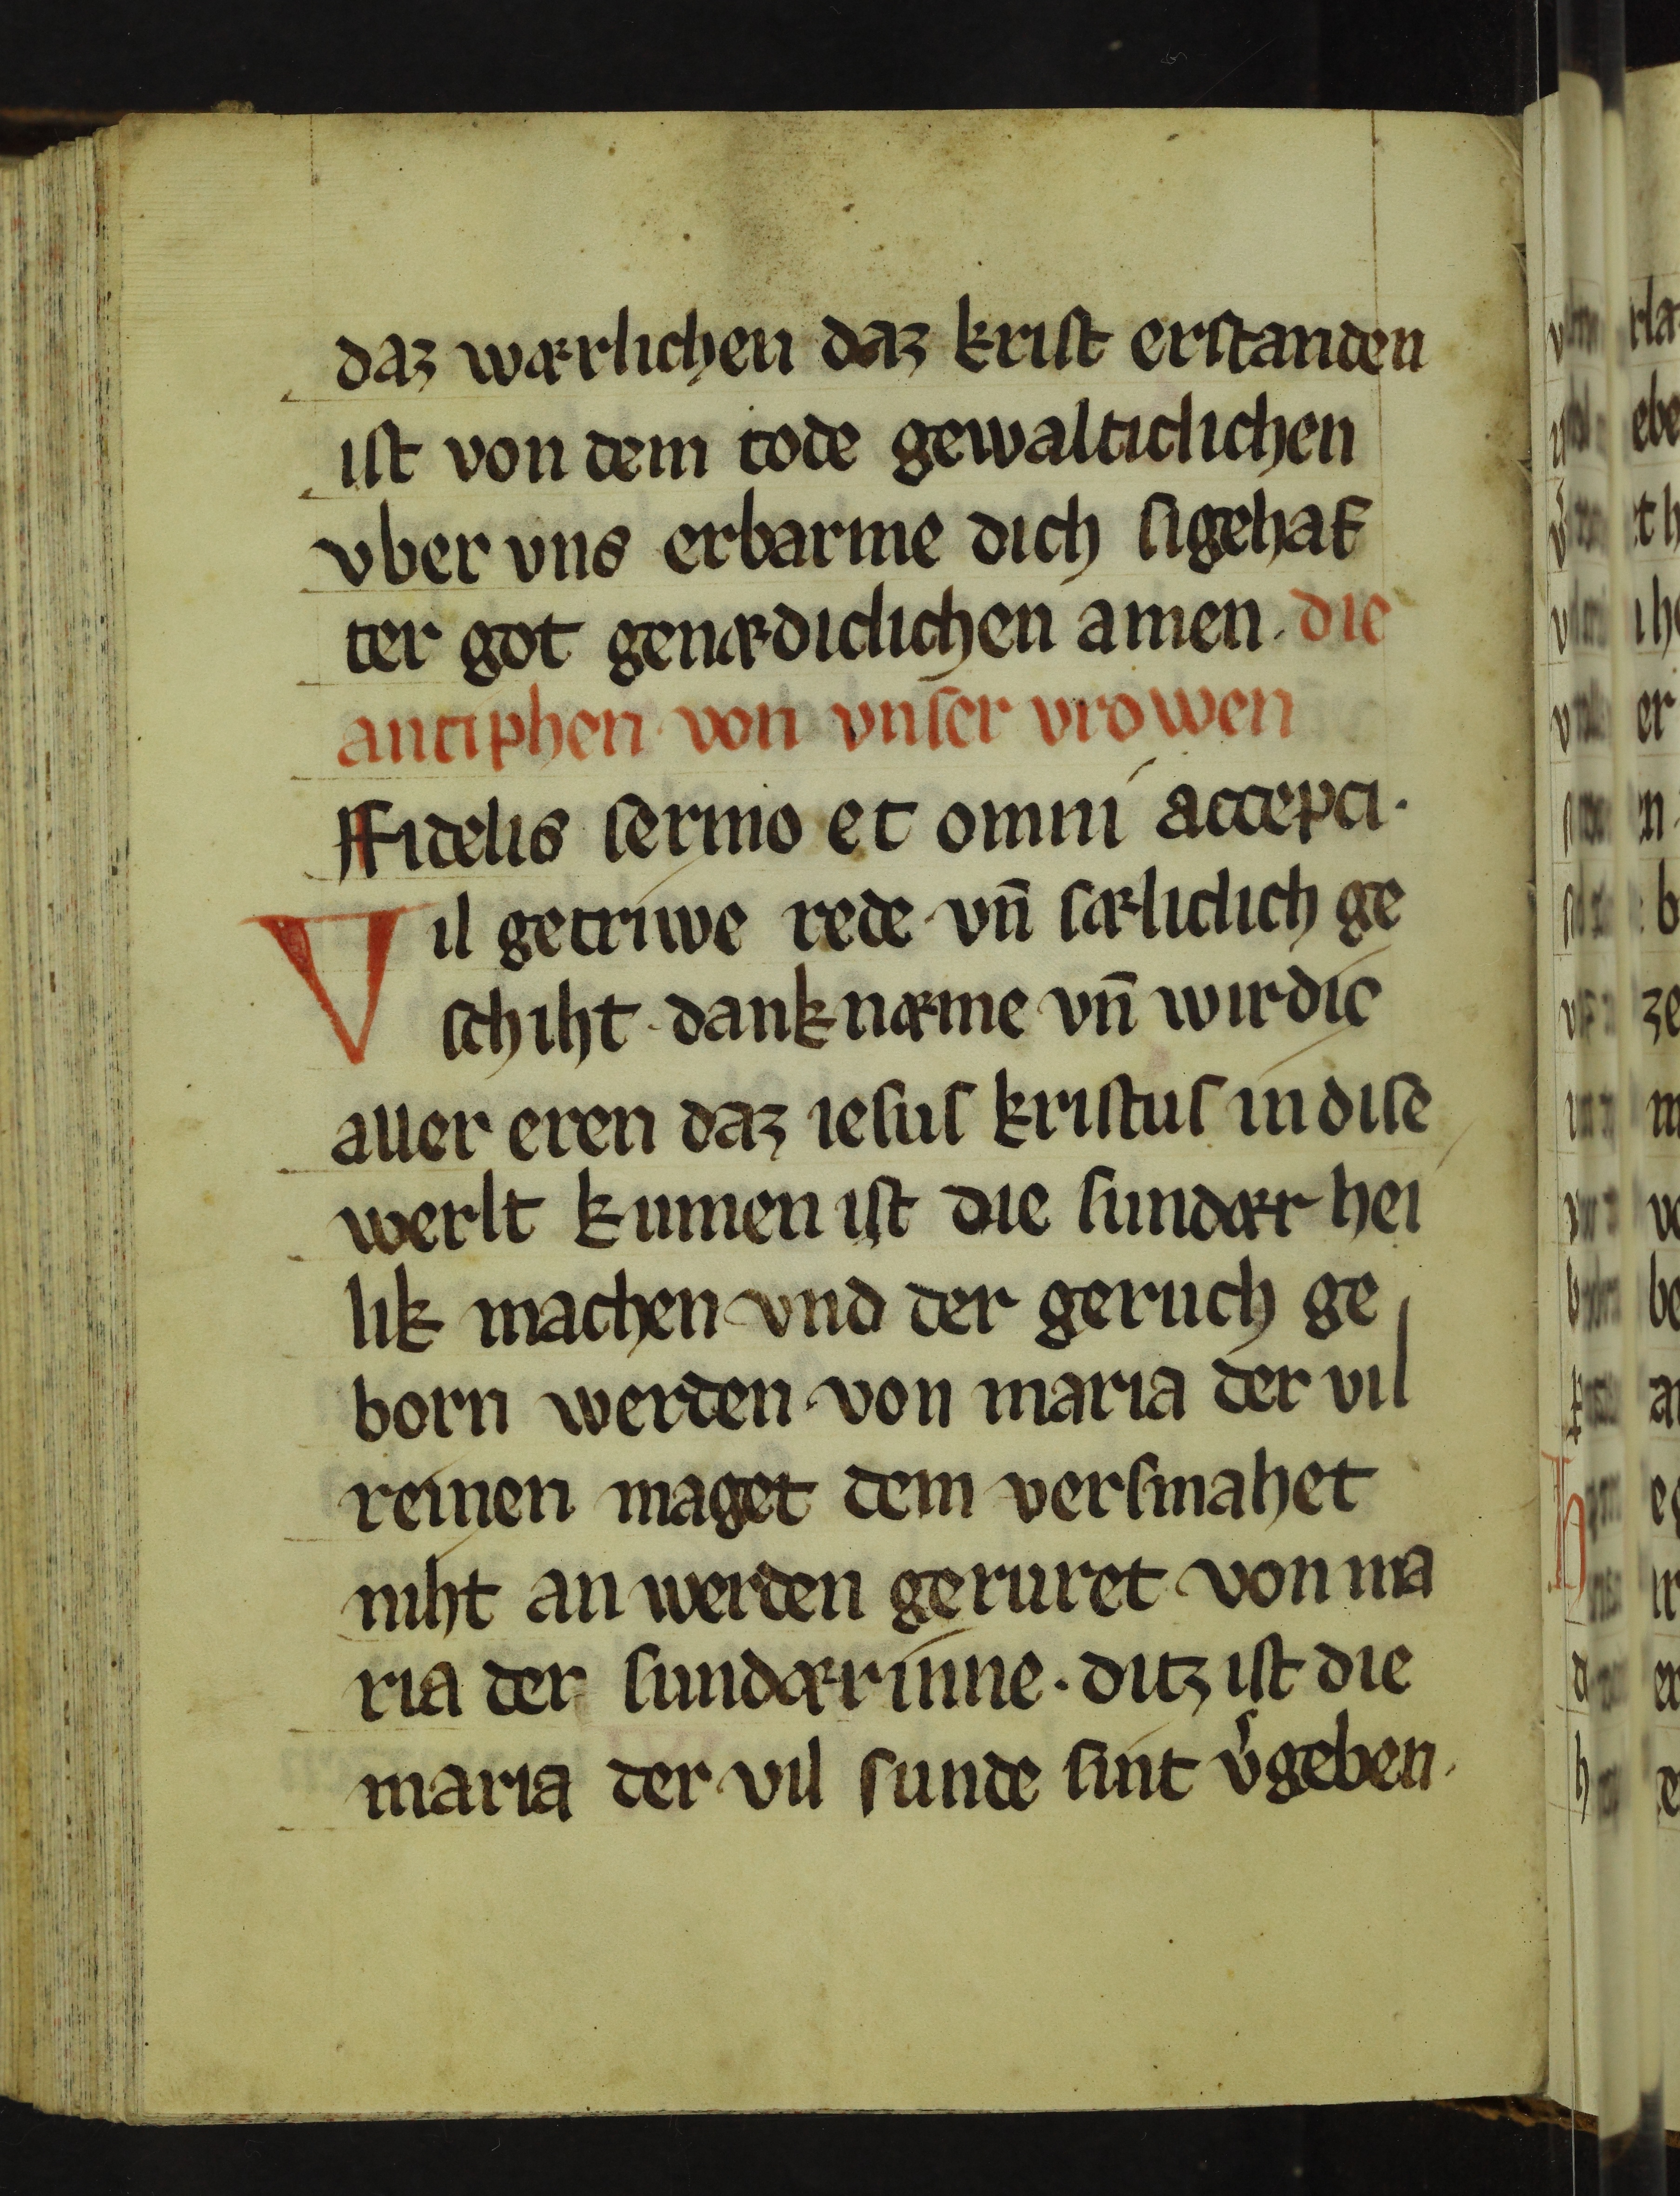 daz wærlichen daz kriſt erſtanden
iſt von dem tode gewalticlichen
vber vns erbarme dich ſigehaf
ter got genædiclichen amen. die
antiphen von vnſer vrowen
Fidelis ſermo et omni accepti·
Vil getriwe rede vn̄ ſæliclich ge
ſchiht danknæme vn̄ wirdic
aller eren daz ieſuſ kriſtuſ in diſe
werlt kumen iſt die ſundær hei
lik machen vnd der geruch ge
born werden von maria der vil
reinen maget dem verſmahet
niht an werden geruret von ma
ria der ſundærinne · ditz iſt die
maria der vil ſunde ſint v͛geben.